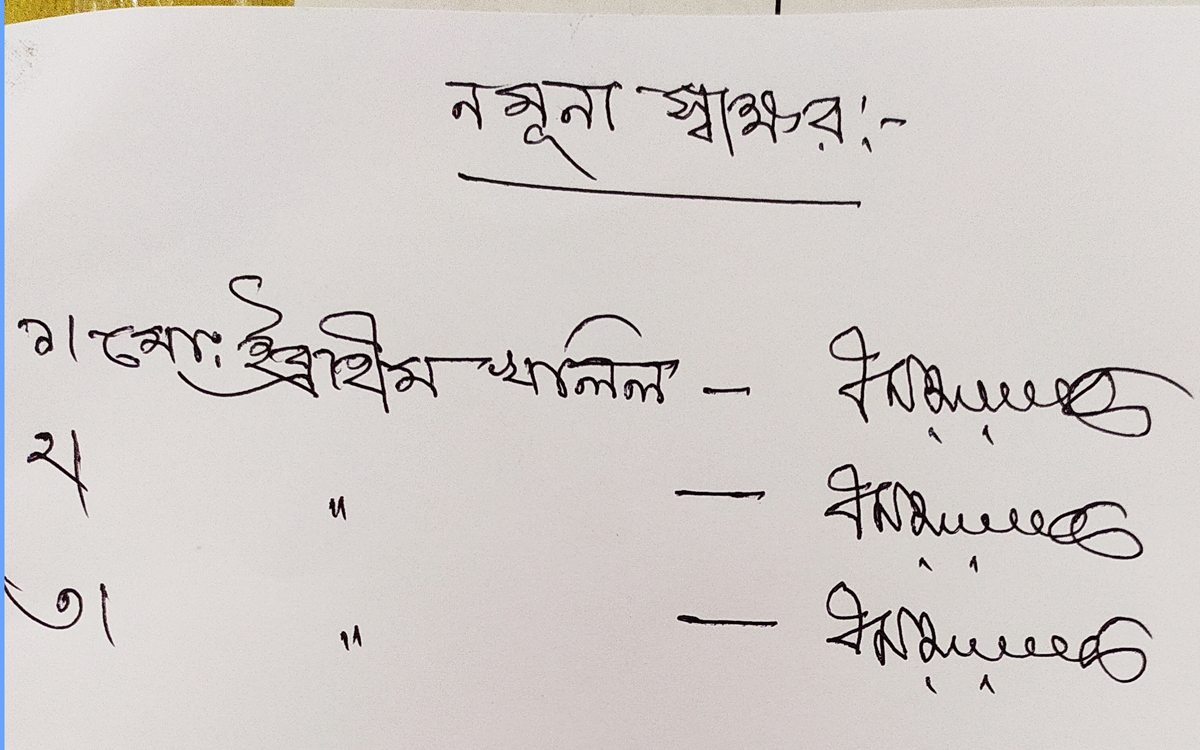 নমূনা স্বাক্ষর:-
১। মো: ইব্রাহীম খলিল —
২। " —
৩। " —